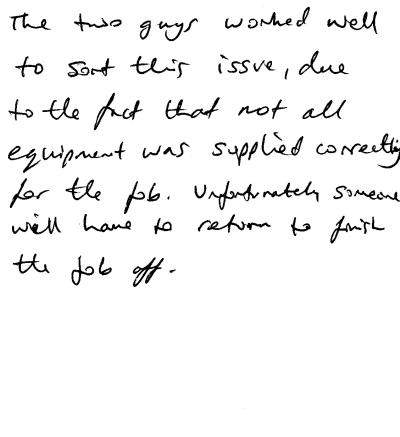 The two guys worked well
to sort this issue, due
to the fact that not all
equipment was supplied correctly
for the job. Unfortunately someone
will have to return to finish
the job off.